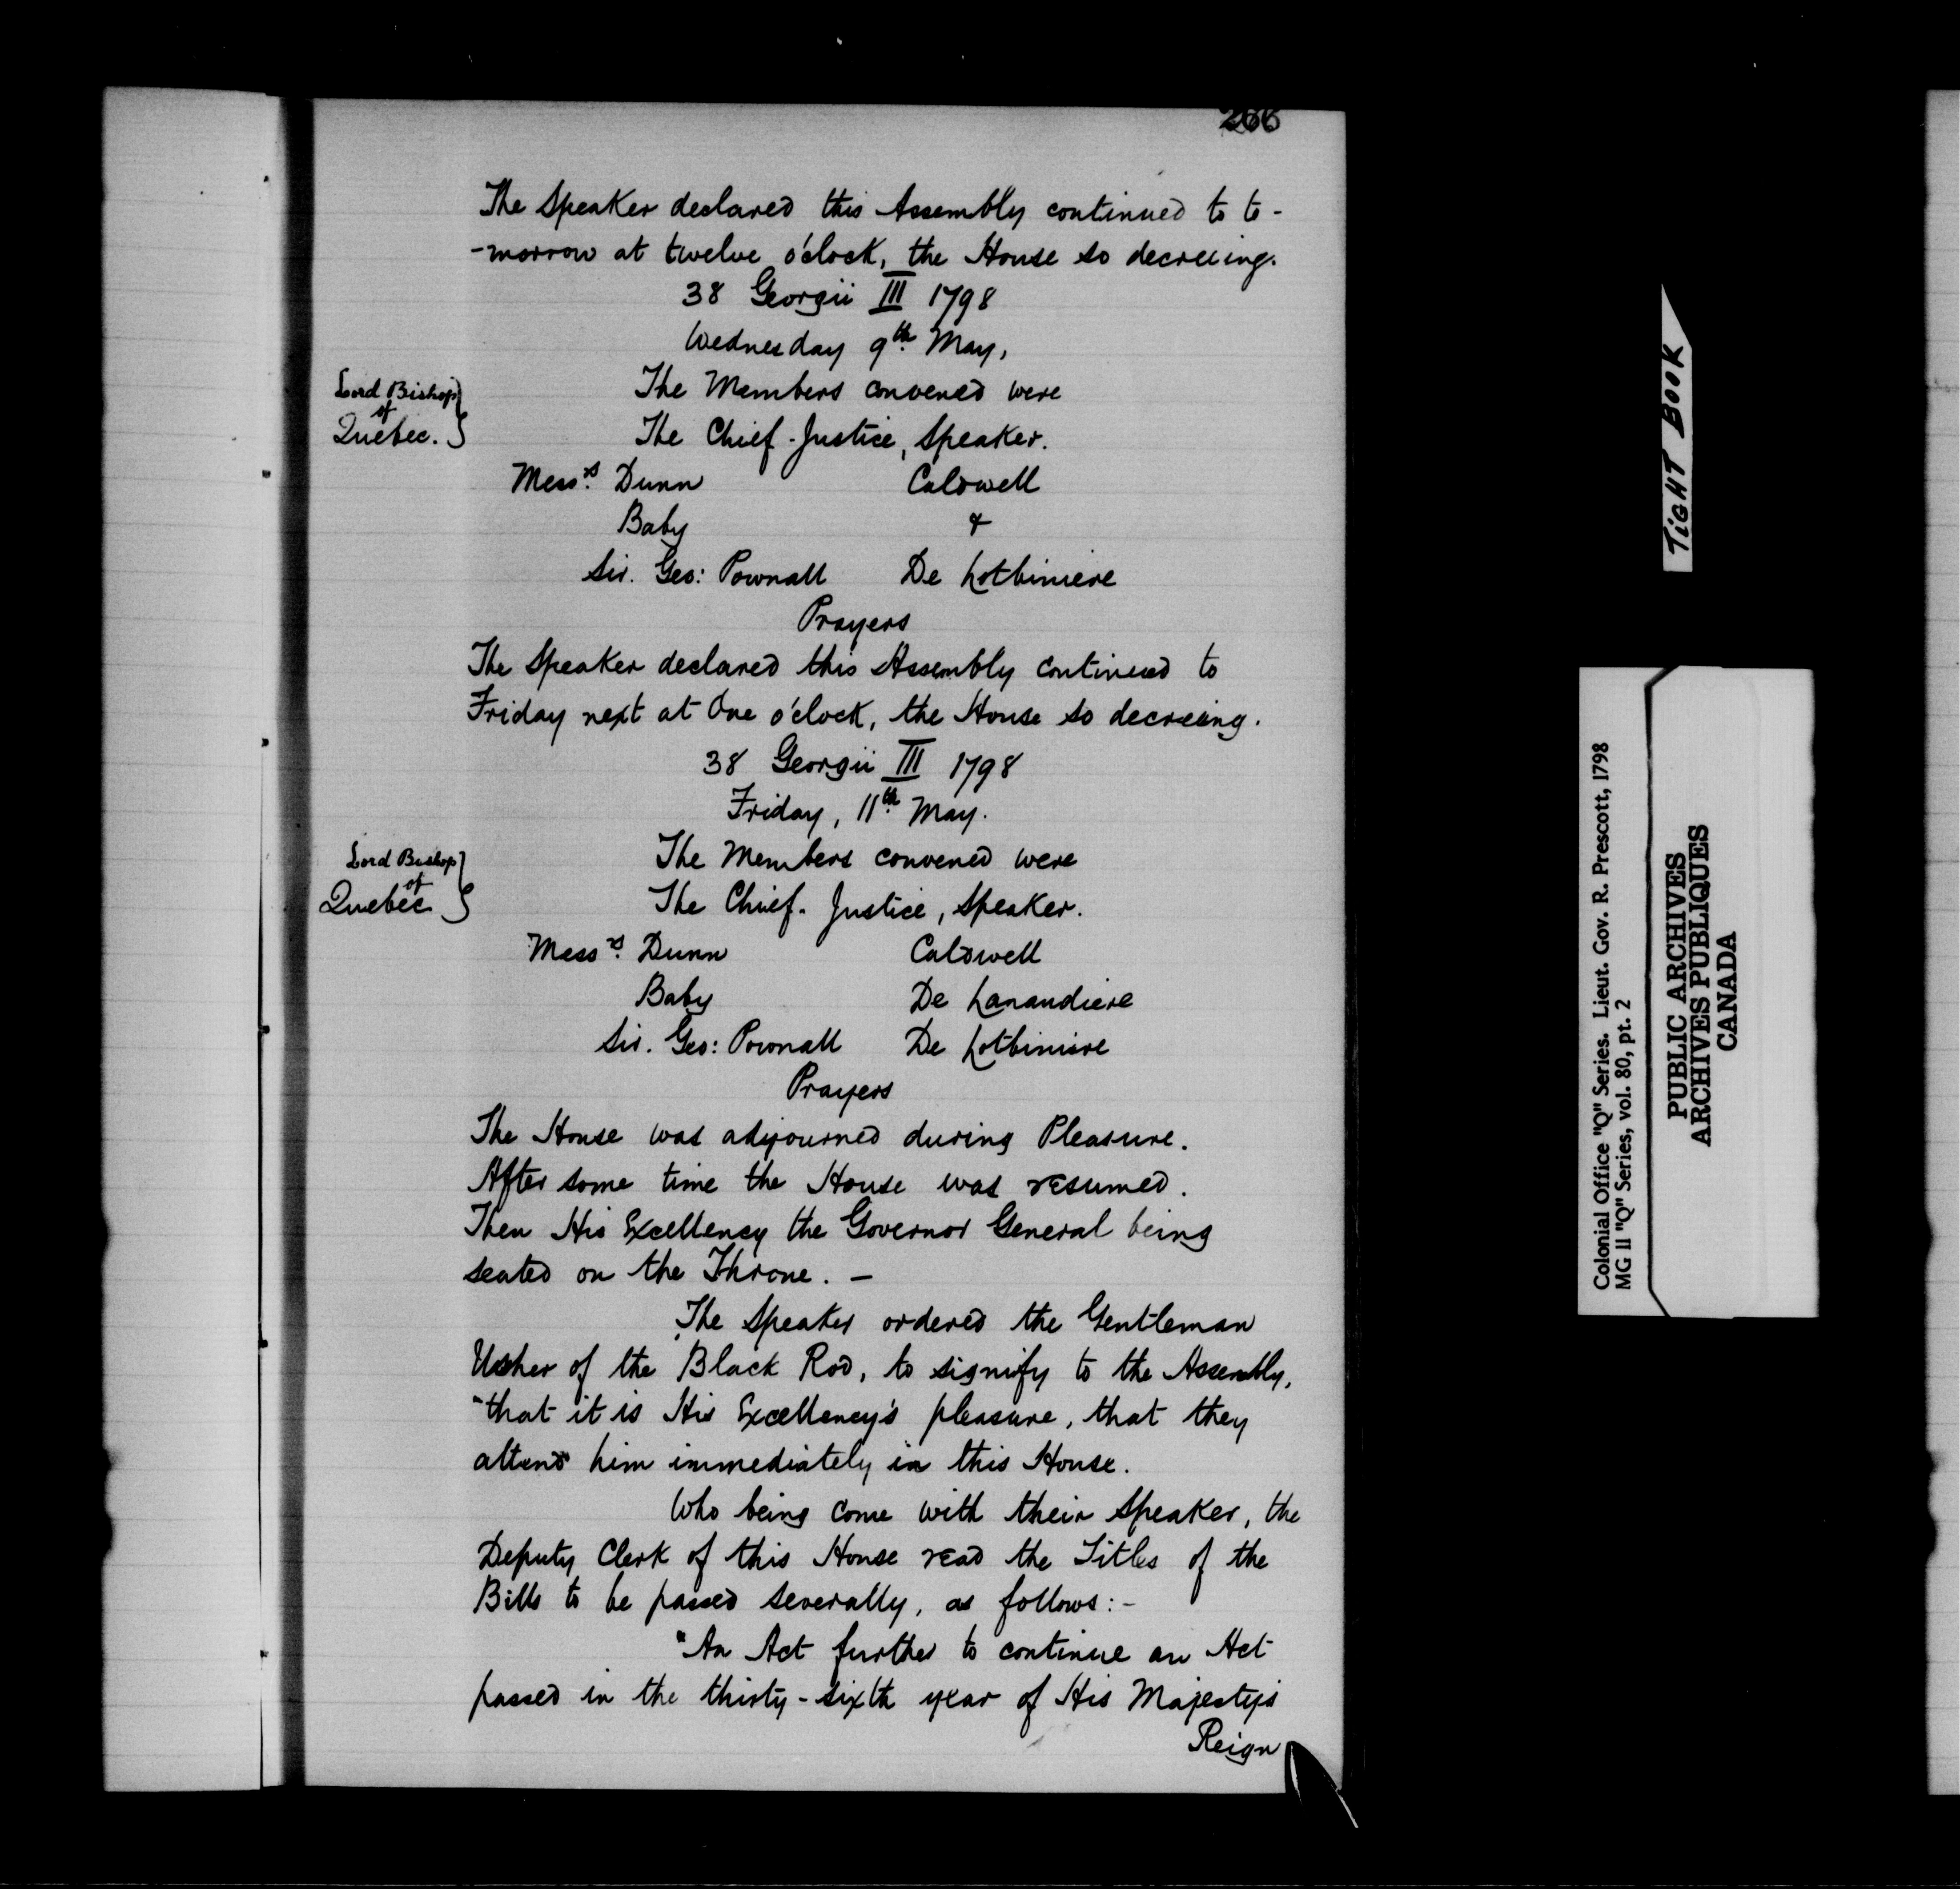 266
The Speaker declared this Assembly continued to to-
-morrow at twelve o'clock, the House so decreeing.
38 Georgii III 1798
Wednesday 9th May,
Lord Bishop
of
Quebec.
The Members convened were
The Chief-Justice, Speaker.
Messrs. Dunn Caldwell
Baby &
Sir. Geo: Pownall De Lotbiniere
Prayers
The Speaker declared this Assembly continued to
Friday next at One o'clock, the House so decreeing.
38 Georgii III 1798
Friday, 11th May.
Lord Bishop
of
Quebec
The Members convened were
The Chief-Justice, Speaker.
Messrs. Dunn Caldwell
Baby De Lanaudiere
Sir. Geo: Pownall De Lotbiniere
Prayers
The House was adjourned during Pleasure.
After some time the House was resumed.
Then His Excellency the Governor General being
seated on the Throne. —
The Speaker ordered the Gentleman
Usher of the Black Rod, to signify to the Assembly,
"that it is His Excellency's pleasure, that they
attend him immediately in this House.
Who being come with their Speaker, the
Deputy Clerk of this House read the Titles of the
Bills to be passed severally, as follows:-
"An Act further to continue an Act
passed in the thirty-sixth year of His Majesty's
Reign
TIGHT BOOK
Colonial Office "Q" Series. Lieut. Gov. R. Prescott, 1798
MG 11 "Q" Series, vol. 80, pt. 2
PUBLIC ARCHIVES
ARCHIVES PUBLIQUES
CANADA